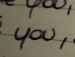 you,
you,